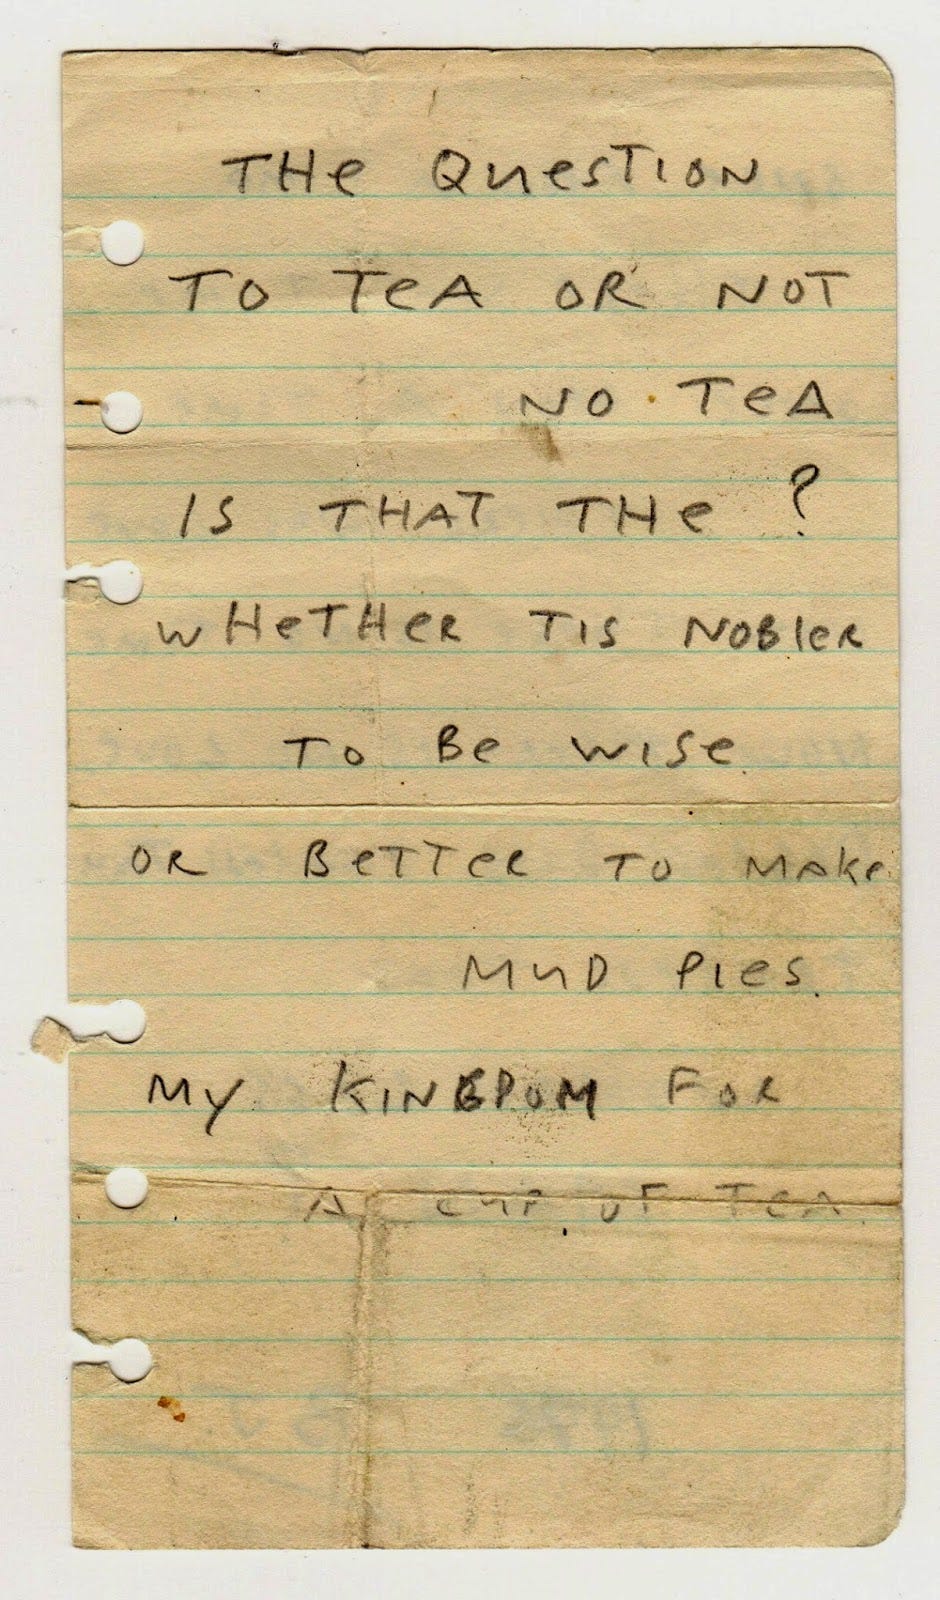 THe QuesTION
TO TeA OR NOT
NO TeA
IS THAT THe ?
WHeTHeR TIS NOBleR
TO Be WISe.
OR BeTTeR TO MAKe
MuD PIes.
My KINGDOM FOR
A CuP OF TeA.